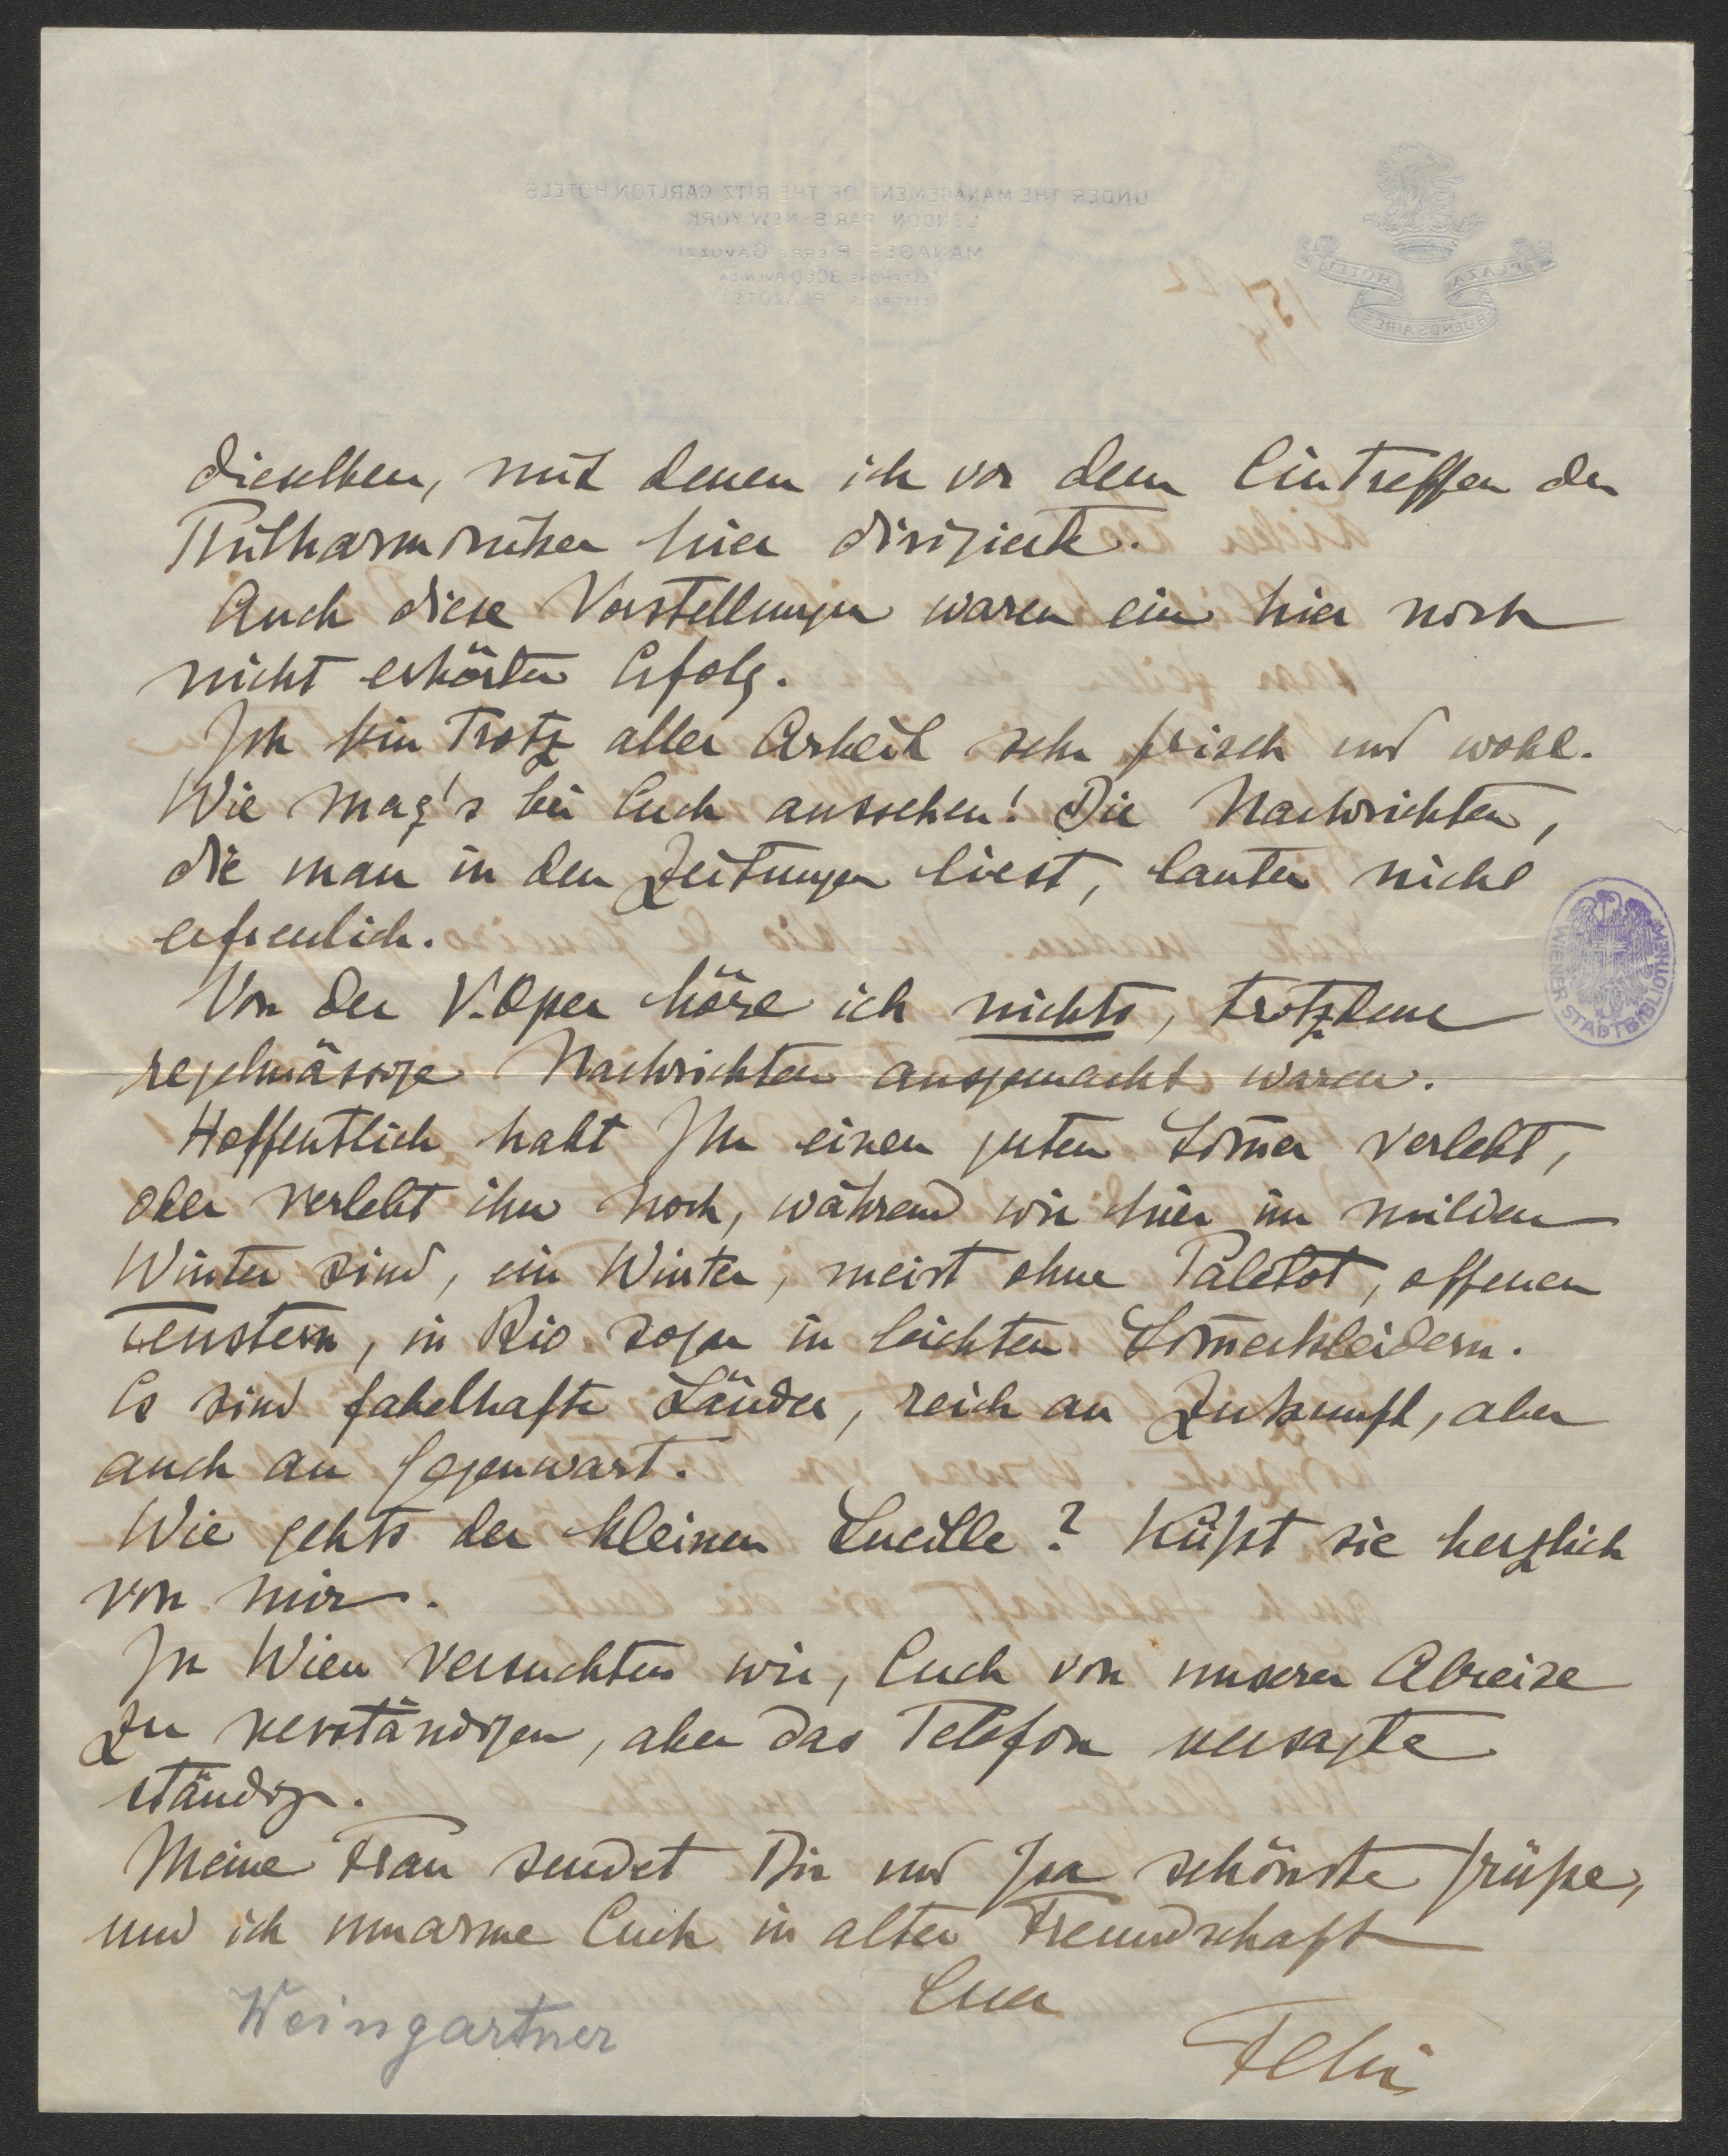 dieselben, mit denen ich vor dem Eintreffen der
Philharmoniker hier dirigierte.
Auch diese Vorstellungen waren ein hier noch
nicht erhörter Erfolg.
Ich bin trotz aller Arbeit sehr frisch und wohl.
Wie mag's bei Euch aussehen! Die Nachrichten,
die man in den Zeitungen liest, lauten nicht
erfreulich.
Von der V. Oper höre ich nichts, trotzdem
regelmässige Nachrichten ausgemacht waren.
Hoffentlich habt Ihr einen guten Som̄er verlebt,
oder verlebt ihn noch, während wir hier im milden
Winter sind, ein Winter, meist ohne Paletot, offenen
Fenstern, in Rio sogar in leichten Som̄erkleidern.
Es sind fabelhafte Länder, reich an Zukunft, aber
auch an Gegenwart.
Wie gehts der kleinen Lucille? Küßt sie herzlich
von mir.
In Wien versuchten wir, Euch von unserer Abreise
zu verständigen, aber das Telefon versagte
ständig.
Meine Frau sendet Dir und Ida schönste Grüße,
und ich umarme Euch in alter Freundschaft
Euer
Felix
Weingartner
WIENER STADTBIBLIOTHEK
UNDER THE MANAGEMENT OF THE RITZ CARLTON HOTELS
LONDON PARIS NEW YORK
MANAGER PIERRE GAVUZZI
TELEPHONE 3060 AVENIDA
TELEGRAMS PLAZOTEL
PLAZA HOTEL
BUENOS AIRES